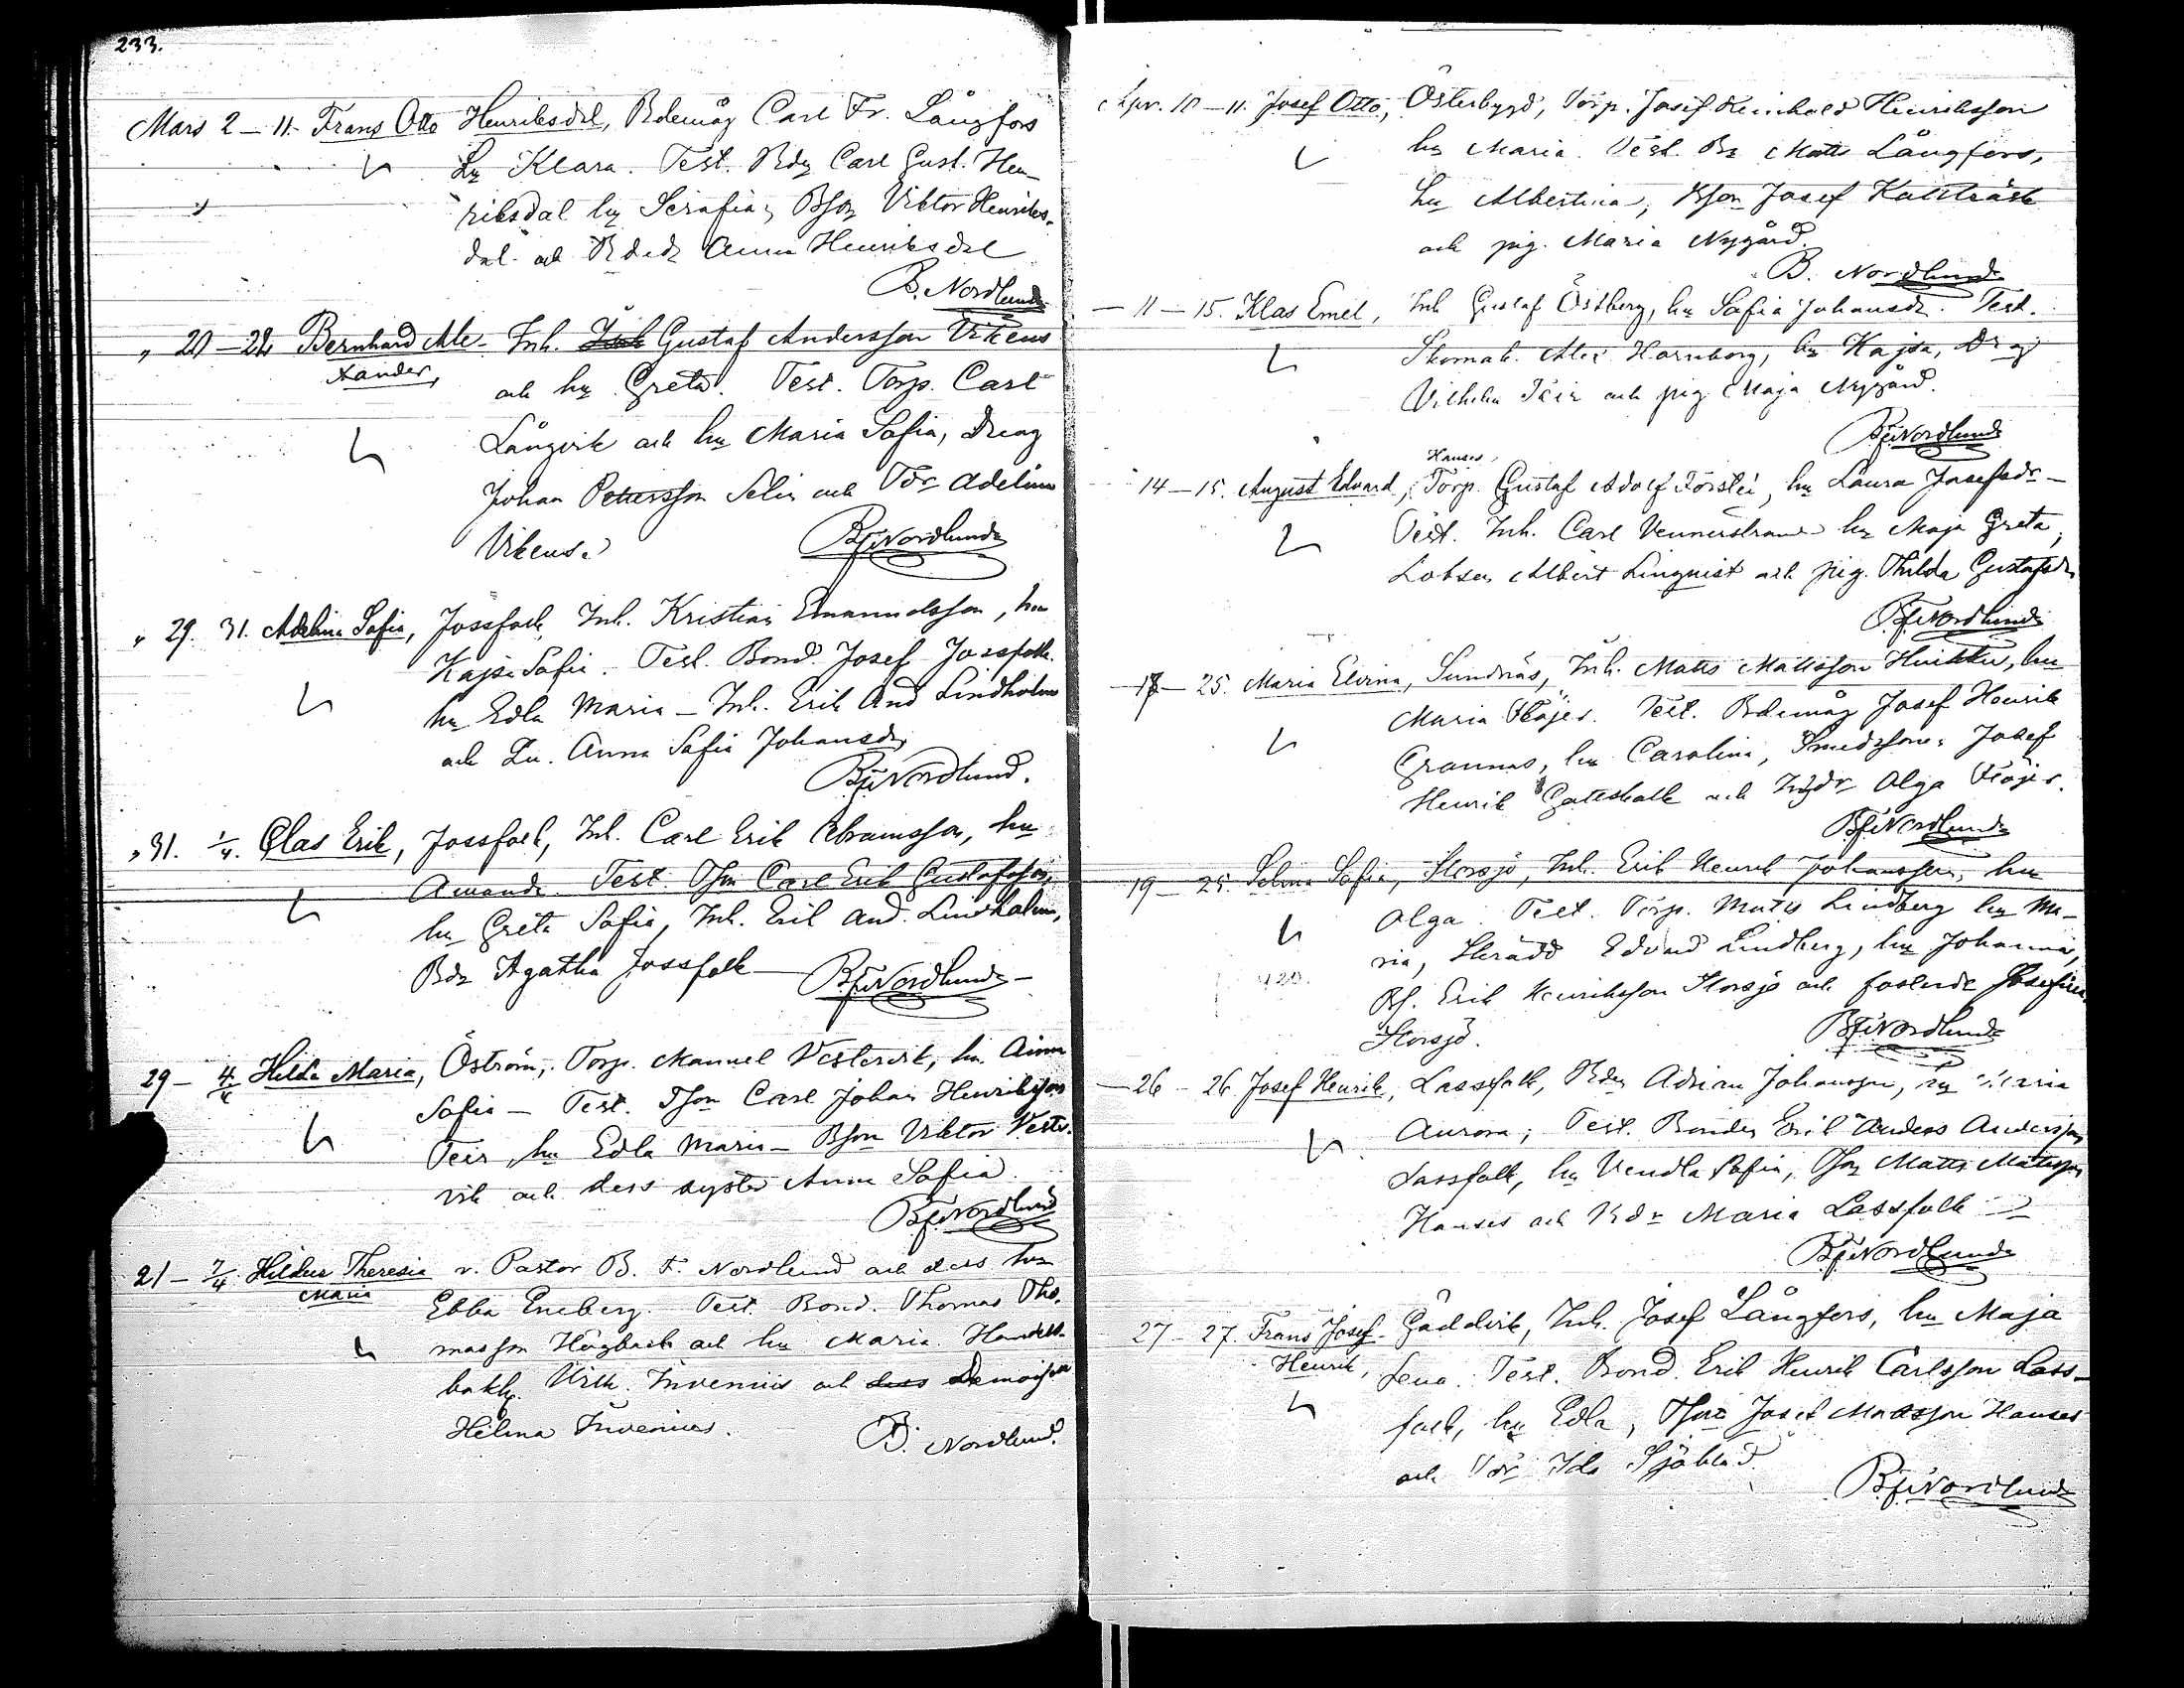 233.
Mars 2 – 11. Frans Otto Henriksdal, Bdemåg Carl Fr. Långfors
hu Klara. Test. Bdn Carl Gust. Hen-
riksdal hu Serafia, Bson Viktor Henriks-
dal och Bdedr Anna Henriksdal
B. Nordlund
" 20 – 22 Bernhard Ale- Inh. Gustaf Andersson Vikens
xander, och hu Greta. Test. Torp. Carl
Långvik och hu Maria Sofia, Dreng
Johan Pettersson Selin och Tdr Adelina
Vikens.
B.F. Nordlund
" 29. 31. Adelina Sofia, Jossfolk, Inh. Kristian Emanuelsson, hu
Kajsa Sofia. Test. Bond. Josef Jossfolk.
hu Edla Maria – Inh. Erik And Lindholm
och Hu. Anna Sofia Johansdr
B.F. Nordlund.
" 31. 1/4. Clas Erik, Jossfolk, Inh. Carl Erik Abramsson, hu
Amanda. Test. Tson Carl Erik Gustafsson,
hu Greta Sofia, Inh. Erik And. Lindholm,
Bdr Agatha Jossfolk – B.F. Nordlund –
29 – 4/4 Hilda Maria, Öström, Torp. Manuel Vestervik, hu Anna
Sofia – Test. Tson Carl Johan Henriksson
Teir, hu Edla Maria – Bson Viktor Vester-
vik och dess syster Anna Sofia.
B.F. Nordlund
21 – 7/4 Hildur Theresia v. Pastor B. F. Nordlund och dess hu
Maria Ebba Eneberg. Test. Bond. Thomas Tho-
masson Högback och hu Maria. Handels-
bokh. Vilh. Invenius och dess Demoiselle
Hilma Invenius.
B. Nordlund.
Apr. 10 – 11. Josef Otto, Österbygd, Torp. Josef Reinhold Henriksson
hu Maria. Test. Bn Matts Långfors,
hu Albertina, Bson Josef Kaltträsk
och pig. Maria Nygård.
B. Nordlund
– 11 – 15. Klas Emil, Inh Gustaf Östberg, hu Sofia Johansdr. Test.
Skomak. Alex Harnborg, hu Kajsa, Drg
Vilhelm Teir och pig Maja Nygård.
B.F. Nordlund
Hanses
14 – 15. August Edvard, Torp. Gustaf Adolf Förster, hu Laura Josefsdr –
Test. Inh. Carl Vennerstrand hu Maja Greta,
Lotsen Albert Linqvist och pig. Thilda Gustafsdr
B.F. Nordlund
– 18 – 25. Maria Elvina, Sundnäs, Inh. Matts Mattsson Huikku, hu
Maria Höijer. Test. Bdemåg Josef Henrik
Grannas, hu Carolina, Smedsson Josef
Henrik Gottskalk och Inhdr Olga Höijer.
B.F. Nordlund
19 – 25. Selma Sofia, Storsjö, Inh. Erik Henrik Johansson, hu
Olga Test. Torp. Matts Lindberg hu Ma-
ria, Skrädd Edvard Lindberg, hu Johanna,
Bs. Erik Henriksson Storsjö och fosterdr Josefina
Storsjö.
B.F. Nordlund
– 26 – 26. Josef Henrik, Lassfolk, Bdn Adrian Johansson, hu Maria
Aurora; Test. Bonden Erik Anders Andersson
Lassfolk, hu Vendla Sofia, Tson Matts Mattsson
Hanses och Bdr Maria Lassfolk
B.F. Nordlund
27 – 27. Frans Josef Gåddvik, Inh. Josef Långfors, hu Maja
Henrik, Lena. Test. Bond. Erik Henrik Carlsson Lass-
folk, hu Edla, Tson Josef Mattsson Hanses
och Tdr Ida Sjöblad.
B.F. Nordlund